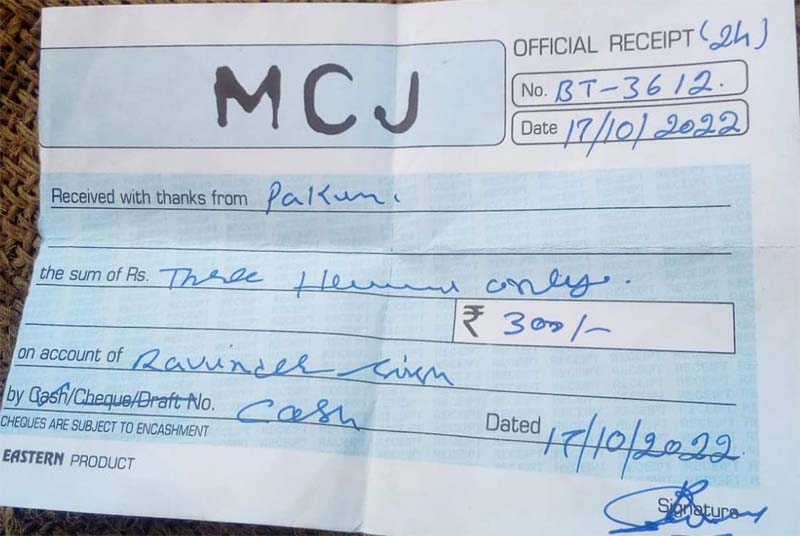 OFFICIAL RECEIPT (2h)
MCJ
No. BT-3612.
Date 17/10/2022
Received with thanks from Pakun.
the sum of Rs. Three only.
₹ 300/-
on account of Ravinder Singh
by Cash/Cheque/Draft No. Cash
Dated 17/10/2022.
CHEQUES ARE SUBJECT TO ENCASHMENT
EASTERN PRODUCT
Signature